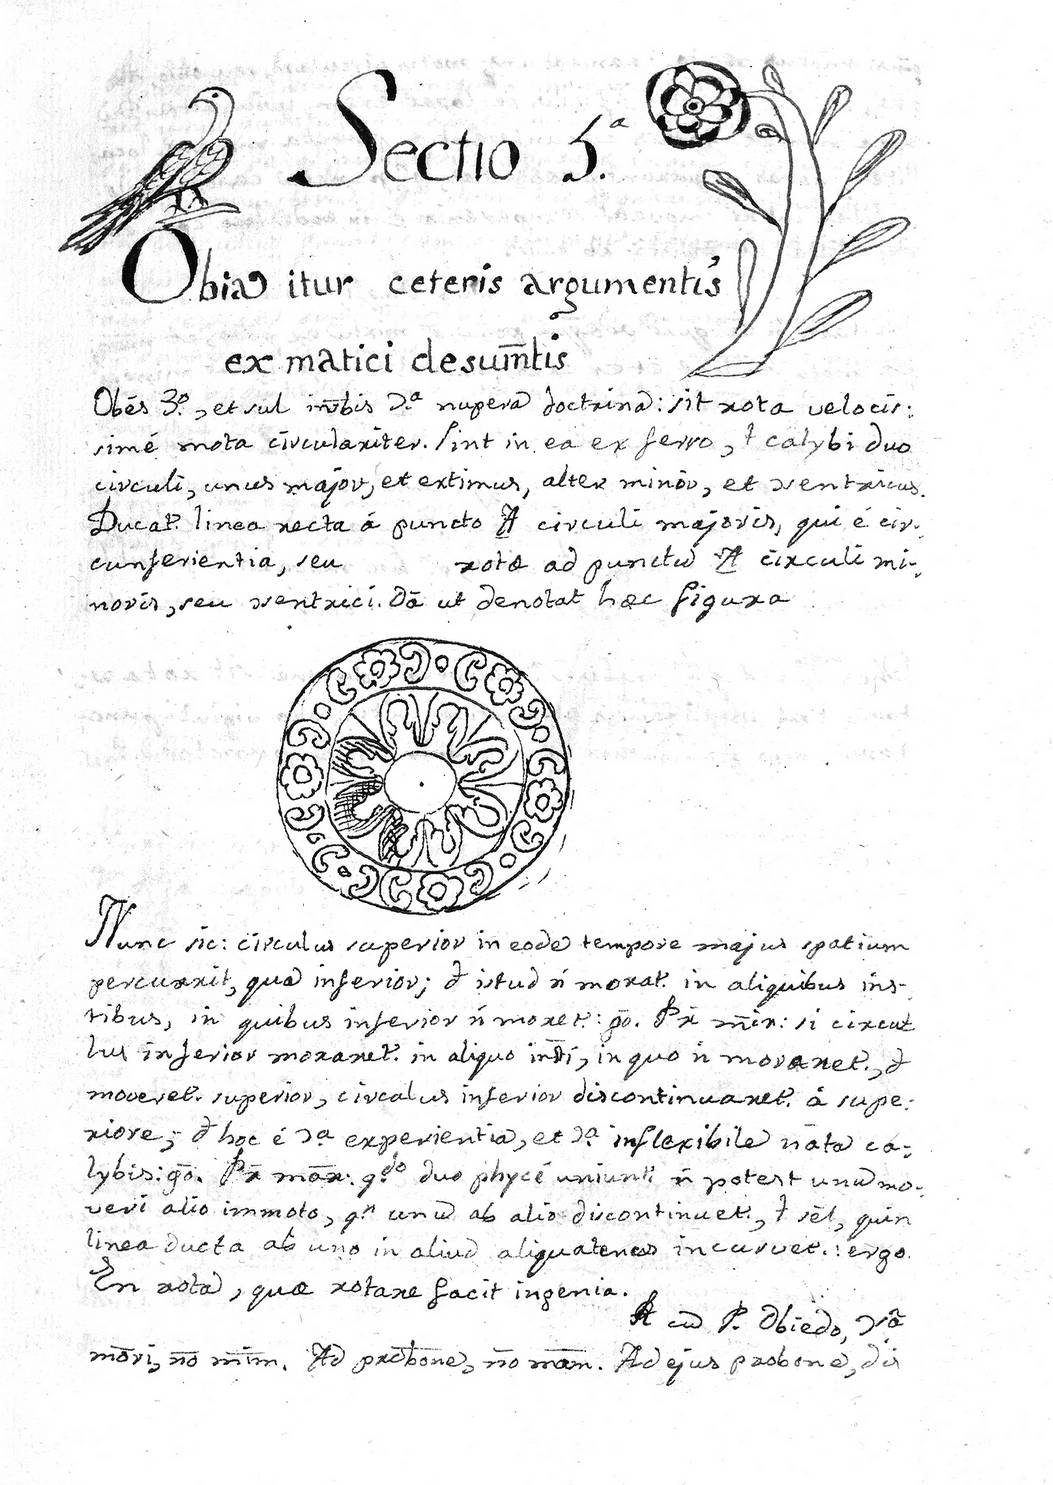 Sectio 5.ª
Obiā itur ceteris argumentis
ex matici desum̄tis
Obēs 3.º, et sul in̄bis nuperā doctrinā: sit rota velocis:
simé mota circulariter. Sint in ea ex ferro, ł calybi duo
circuli, unus major, et extimus, alter minor, et ventricus.
Ducat.r linea recta á puncto A circuli majoris, qui é cir-
cunferientia, seu rotæ ad punctū A circuli mi-
noris, seu ventrici. Dā ut denotat hæc figura
Nunc sic: circulus superior in eodē tempore majus spatium
percurrit, quā inferior; istud n̄ morat. in aliquibus ins-
tibus, in quibus inferior n̄ moret.: gō. Pr̄ mīr: si circul
lus inferior moraret. in aliquo in quo n̄ moraret.,
moveret. superior, circulus inferior discontinuaret. á supe:
riore; hoc é experientia, et inflexibile nāta ca-
lybis: gō. Pr̄ mār: q.do duo phycé uniunti n̄ potest unū mo-
veri alio immoto, q.n unū ab alio discontinuet., ł sēl, quin
linea ducta ab uno in aliud aliquatenus incurvet.: ergo.
En rotā, quæ rotare facit ingenia.
R cū P. Obiedo,
mōri, nō mīm. Ad prob̄one, nō mām. Ad ejus probone, dis